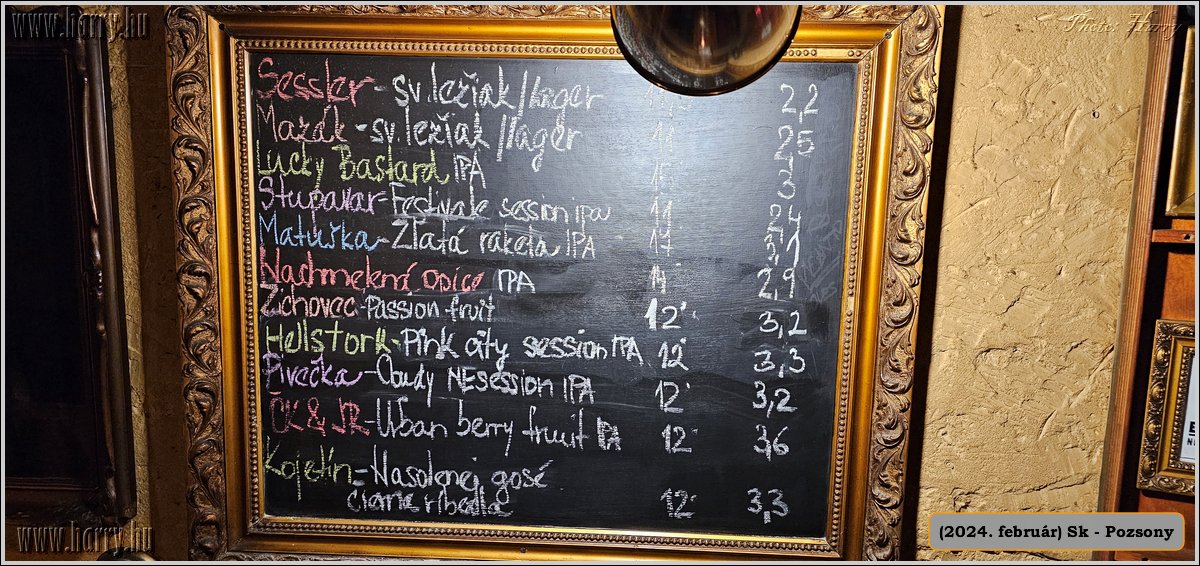 www.harry.hu
Photo: Harry
Sessler - sv. ležiak/lager 2,2
Mazák - sv. ležiak/lager 11 2,5
Lucky Bastard IPA 15 3
Stupavar - Festivale session ipa 11 2,4
Matuška - Zlatá raketa IPA 17° 3,1
Nachmelená opice IPA 14° 2,9
Zichovec - Passion fruit 12° 3,2
Hellstork - Pink city session IPA 12° 3,3
Pivečka - Coudy NE session IPA 12° 3,2
CK & JR - Urban berry fruit IPA 12° 3,6
Kojetín - Nasolenej gosé
cierne ribezla 12° 3,3
(2024. február) Sk - Pozsony
www.harry.hu
www.harry.hu